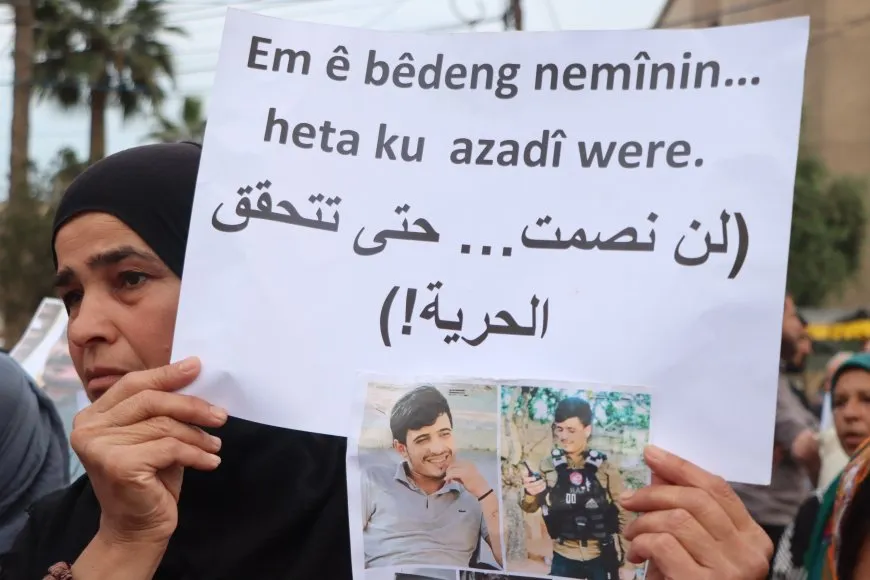 Em ê bêdeng nemînin...
heta ku azadî were.
(لن نصمت... حتى تتحقق
الحرية!)